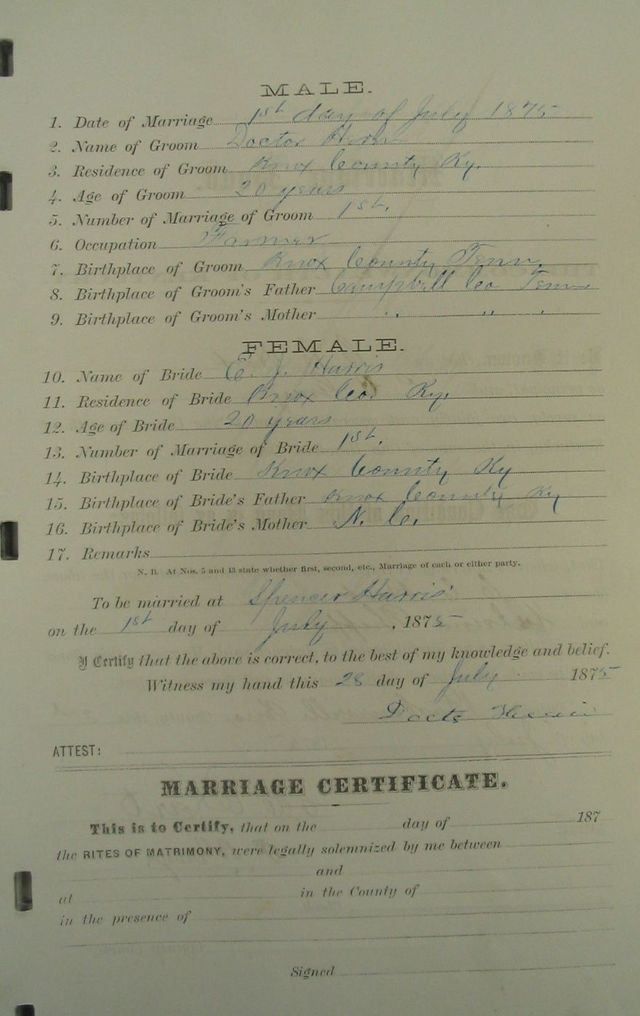 MALE.
1. Date of Marriage 1st day of July 1875
2. Name of Groom Doctor
3. Residence of Groom Knox County Ky.
4. Age of Groom 20 years
5. Number of Marriage of Groom 1st.
6. Occupation Farmer
7. Birthplace of Groom Knox County Tenn.
8. Birthplace of Groom's Father Campbell Co Tenn
9. Birthplace of Groom's Mother " " "
FEMALE.
10. Name of Bride E. J. Harris
11. Residence of Bride Knox Coo Ky.
12. Age of Bride 20 years
13. Number of Marriage of Bride 1st.
14. Birthplace of Bride Knox County Ky
15. Birthplace of Bride's Father Knox County Ky
16. Birthplace of Bride's Mother N. C.
17. Remarks
N. B. At Nos. 5 and 13 state whether first, second, etc., Marriage of each or either party.
To be married at Spencer Harris'
on the 1st day of July, 1875
I Certify that the above is correct, to the best of my knowledge and belief.
Witness my hand this 28 day of July 1875
ATTEST:
MARRIAGE CERTIFICATE.
This is to Certify, that on the day of 187
the RITES OF MATRIMONY, were legally solemnized by me between
and
at in the County of
in the presence of
Signed